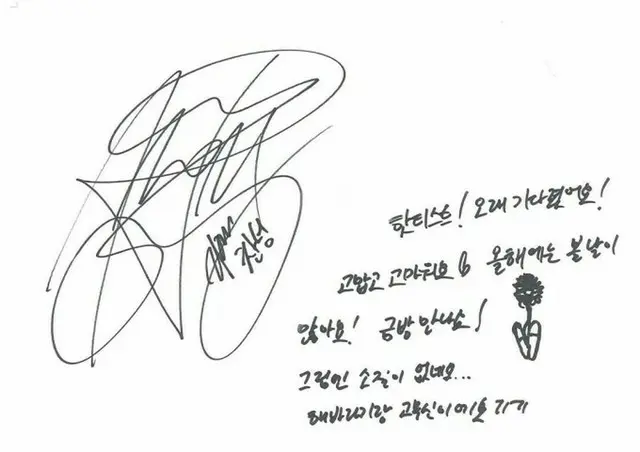 찬성
핫티스트! 오래 기다렸어요!
고맙고 고마워요 올해에는 볼 날이
많아요! 금방 만나요!
그림엔 소질이 없네요...
해바라기랑 고무신이에요